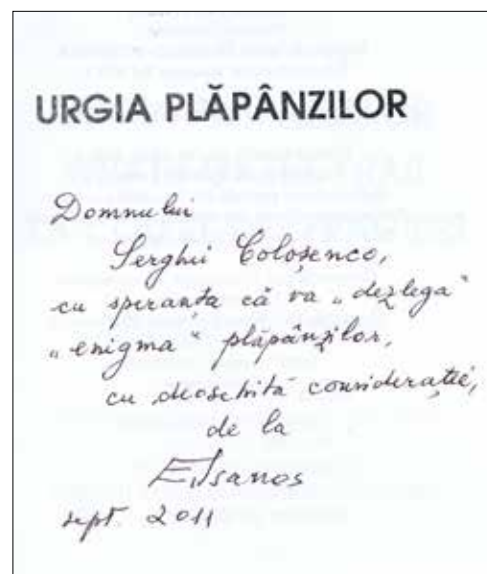 URGIA PLĂPÂNZILOR
Domnului
Serghei Coloșenco,
cu speranța că va „dezlega“
„enigma“ plăpânzilor,
cu deosebită considerație,
de la
E. Isanos
sept. 2011